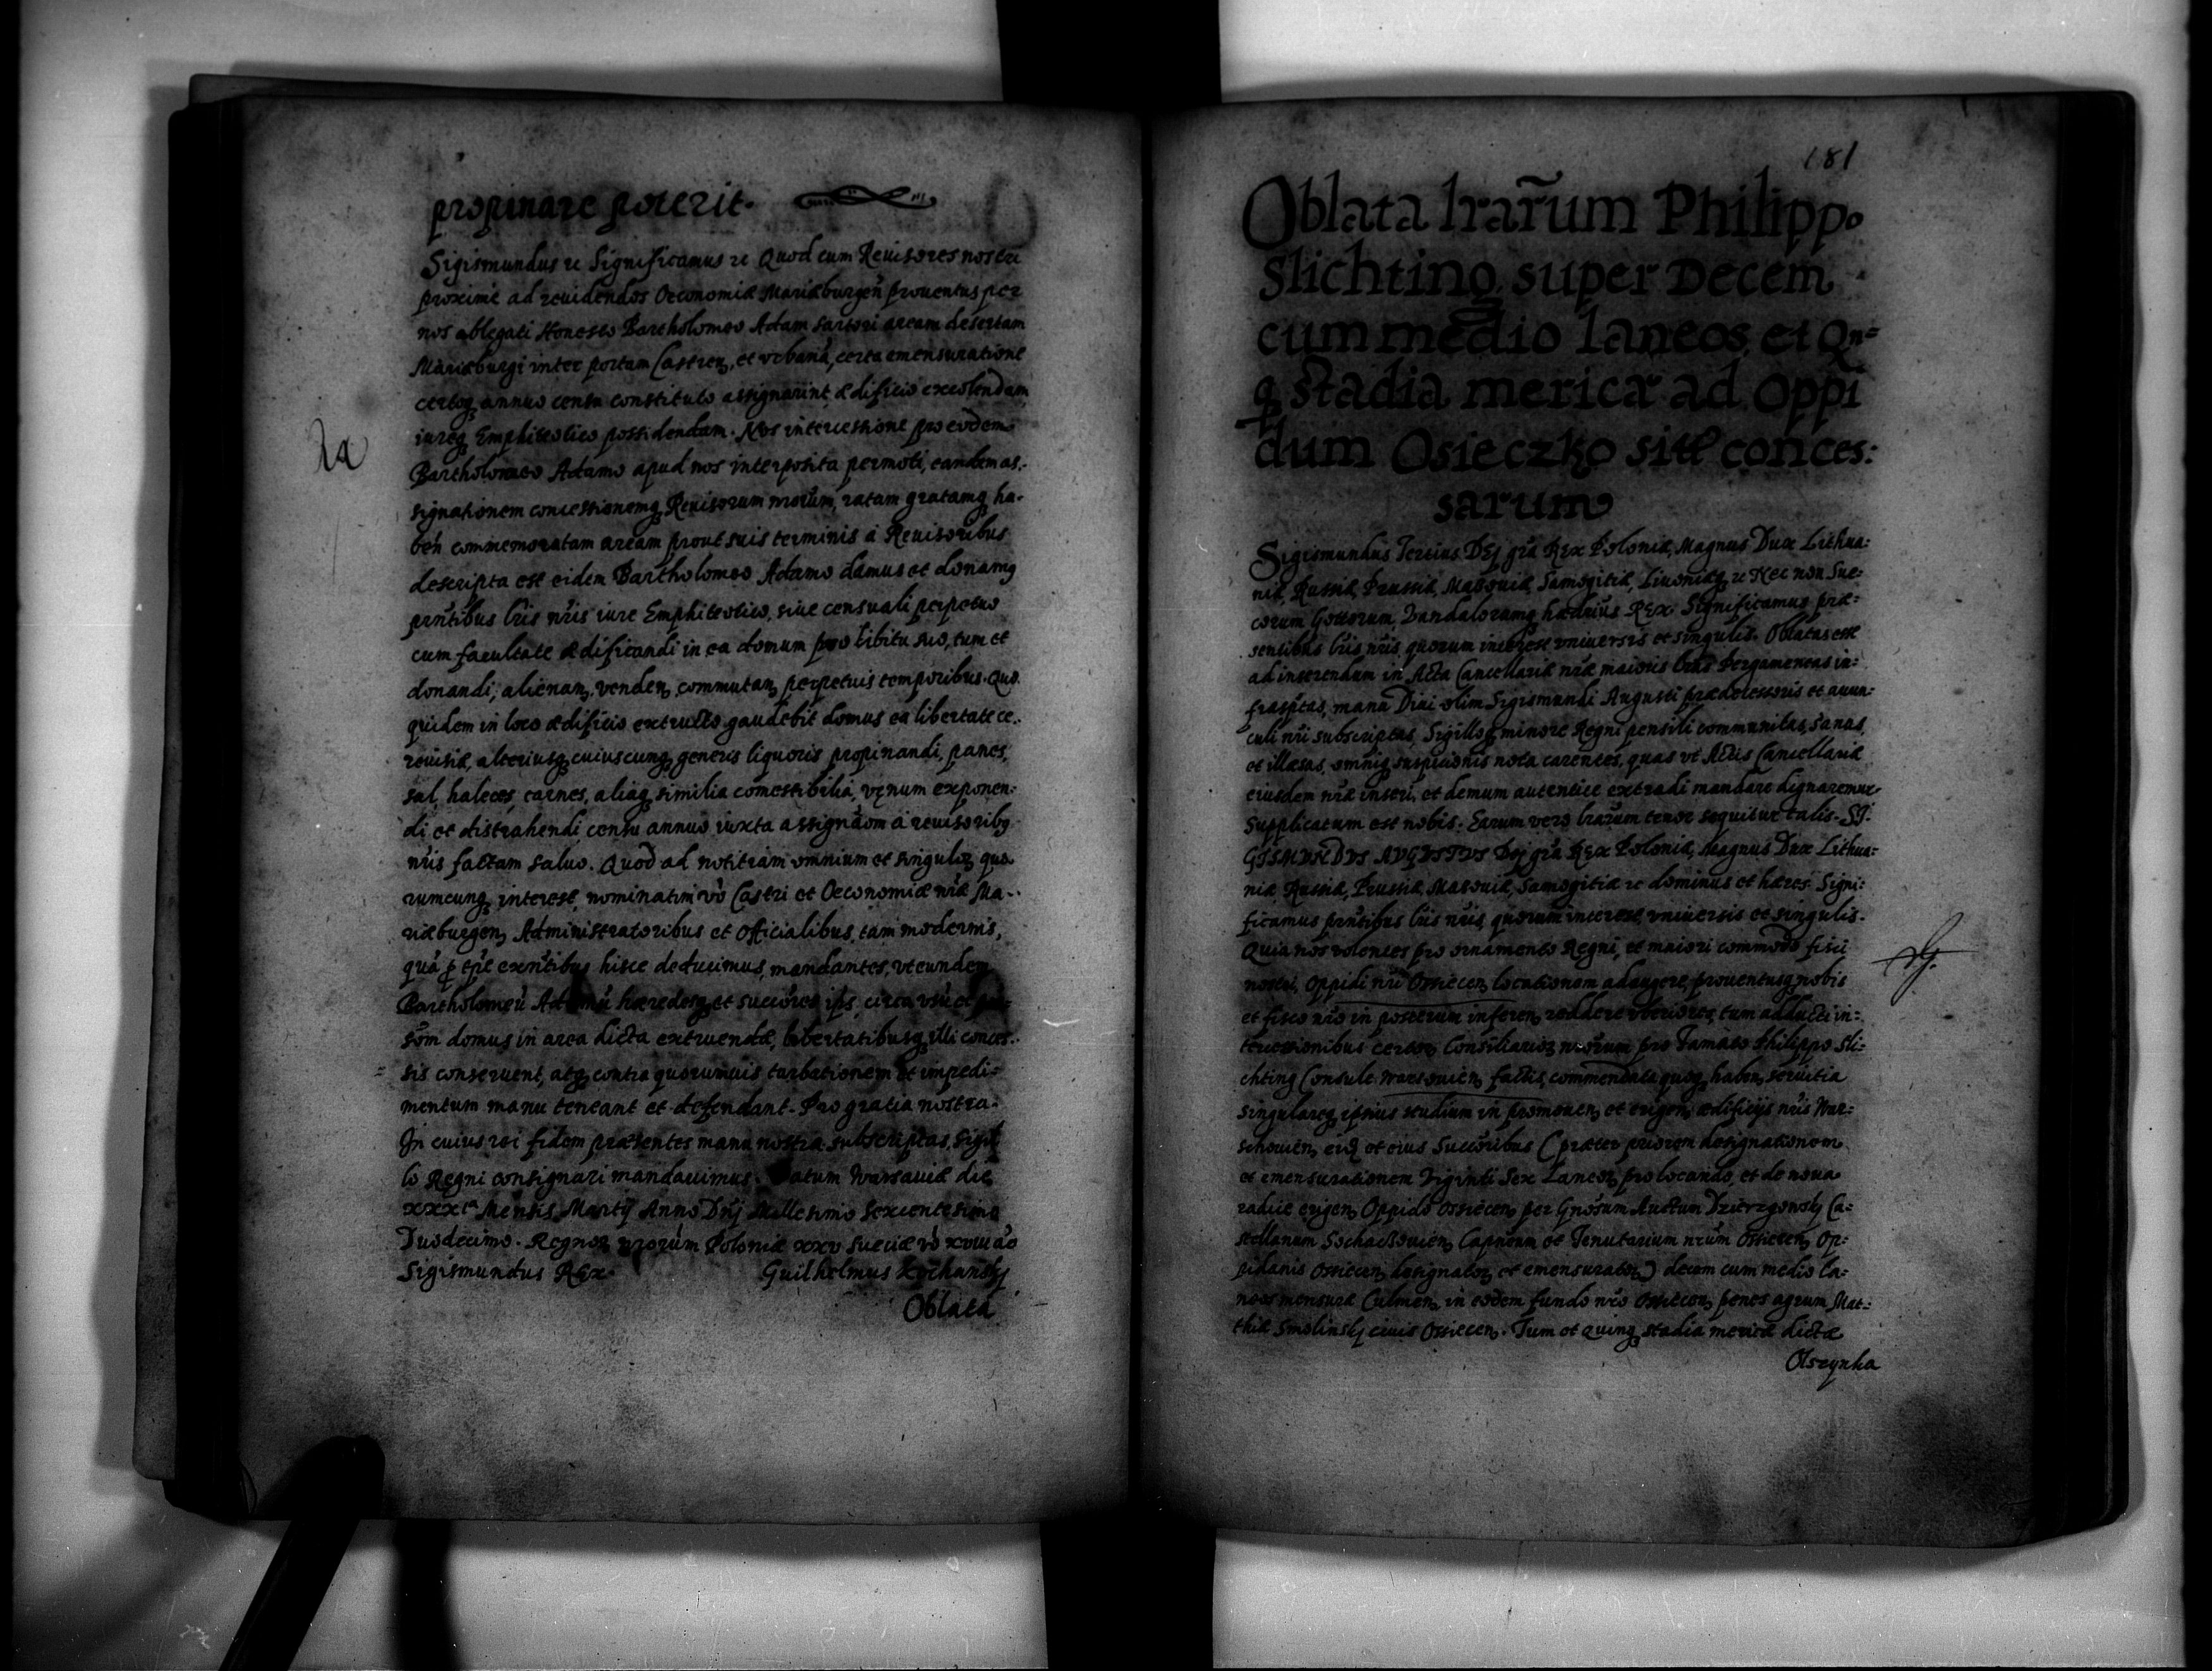 propinare poterit.
Sigismundus etc Significamus etc Quod cum Reuisores nostri
proximè ad reuidendos Oeconomiæ Mariæburgeñ prouentus per
nos ablegati Honesto Bartholomeo Adam Sartori aream desertam
Mariæburgi inter portam Castreñ, et vrbanã, certa emensuratione
certoq; annuo censu constituto assignarint, ædificio excolendam
iureq; Emphiteotico possidendam. Nos intercessione pro eodem
Bartholomeo Adamo apud nos interposita permoti, eandem as-
signationem concessionemq; Reuisorum nrorum, ratam gratamq; ha-
beñ commemoratam aream prout suis terminis à Reuisoribus
descripta est eidem Bartholomeo Adamo damus et donamq
prñtibus lris nris iure Emphiteotico, siue censuali perpetuo
cum facultate ædificandi in ea domum pro libitu suo, tum et
donandi, alienañ, vendeñ, commutañ perpetuis temporibus. Quo
quidem in loco ædificio extructo gaudebit domus ea libertate ce-
reuisiæ, alteriusq; cuiuscunq; generis liquoris propinandi, panes,
sal, haleces, carnes, aliaq; similia comestibilia, venum exponen:
di et distrahendi censu annuo iuxta assignãom à reuisoribq
nris factam saluo. Quod ad notitiam omnium et singulor̃ quo
rumcunq; interest, nominatim vò Castri et Oeconomiæ nræ Ma-
riæburgeñ Administratoribus et Officialibus, tam modernis,
quã p tpe exñtibus hisce deducimus, mandantes, vt eundem
Bartholomeũ Adamũ hæredesq; et succores ips, circa vsũ et
som domus in area dicta extruendæ, libertatibusq; illi conces-
sis conseruent, atq; contra quorumuis turbationem et impedi=
mentum manu teneant et defendant. Pro gratia nostra.
In cuius rei fidem præsentes manu nostra subscriptas, Sigil
lo Regni consignari mandauimus. Datum Warsauiæ die
xxxta Mensis Martij Anno Dñj Millesimo Sexcentesimo
Duodecimo. Regnor̃ nrorum Poloniæ xxv Sueciæ vò xviii aõ
Sigismundus Rex Guilhelmus Kochansky
Oblata
181
Oblata lrarũm Philippo
Slichting super Decem
cum medio laneos et Qn=
q stadia mericæ ad Oppi
dum Osieczko sitæ conces:
sarum
Sigismundus Tertius DEj grã Rex Poloniæ, Magnus Dux Lithua:
niæ, Russiæ, Prussiæ, Masouiæ, Samogitiæ, Liuoniæq; etc Nec non Sue:
corum Gottorum, Vandalorumq; hæredrius REX. Significamus præ:
sentibus lris nris, quorum interest vniuersis et singulis. Oblatas esse
ad inserendum in Acta Cancellariæ nræ maioris lras Pergameneas in:
frascptas, manu Diui olim Sigismundi Augusti prædecessoris et auun:
culi nri subscriptas, Sigilloq; minore Regni pensili communitas, sanas,
et illæsas, omniq; suspicionis nota carentes, quas vt Actis Cancellariæ
eiusdem nræ inseri, et demum autentice extradi mandare dignaremur
Supplicatum est nobis. Earum vero lrarum tenor sequitur talis. SI:
GISMVNDVS AVGVSTVS Dej grã Rex Poloniæ, Magnus Dux Lithua:
niæ Russiæ, Prussiæ, Masouiæ, Samogitiæ etc dominus et hæres. Signi:
ficamus prñtibus lris nris, quorum interest, vniuersis et singulis.
Quia nos volentes pro ornamento Regni, et maiori commodo fisci
nostri, Oppidi nri Ossieceñ locationem adaugere, prouentusq; nobis
et fisco nro in posterum infereñ reddere vberiores, tum adducti in:
tercessionibus certor̃ Consiliarior̃ nrorum pro Famato Philippo Sli:
chting Consule Warsouieñ factis, commendata quoq; habeñ seruitia
singulareq; ipsius studium in promoueñ et erigeñ ædificijs nris War:
schouieñ, eidẽ et eius Succoribus (præter priorem designationem
et emensurationem Viginti Sex Laneor̃ pro locando, et de noua
radice erigeñ Oppido Ossieceñ per Gnosum Auctum Dzierzgowsky Ca:
stellanum Sochaczouieñ Capneum et Tenutarium nrum Ossieceñ Op:
pidanis Ossieceñ designator̃ et emensurator̃) decem cum medio la:
neos mensuræ Culmeñ, in eodem fundo nro Ossieceñ penes agrum Mat:
thiæ Smolinsky ciuis Ossieceñ. Tum et quinq; stadia mericæ dictæ
Olszynka